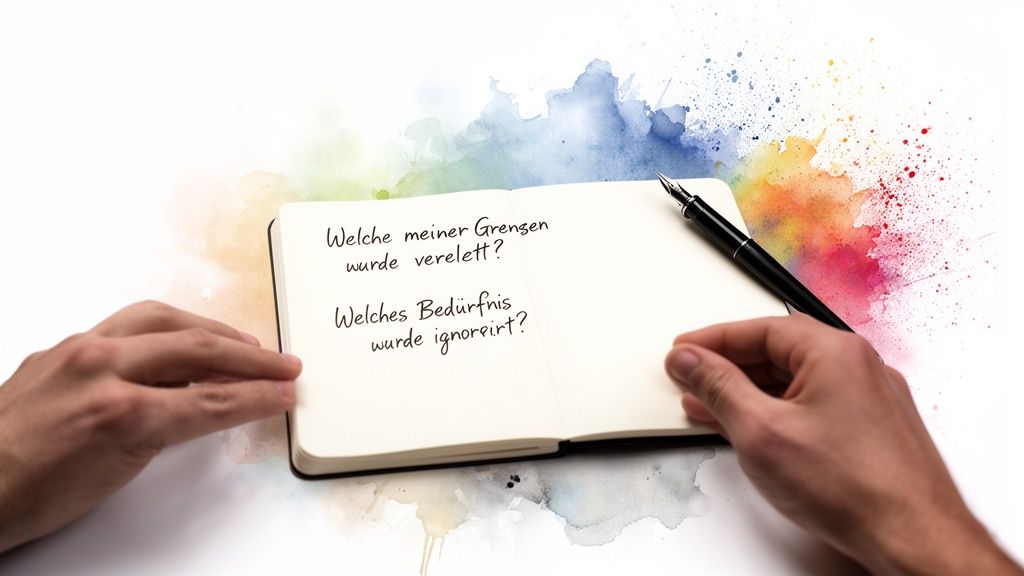 Welche meiner Grengen
wurde verelett?
Welches Bedürfnis
wurde ignoreirt?